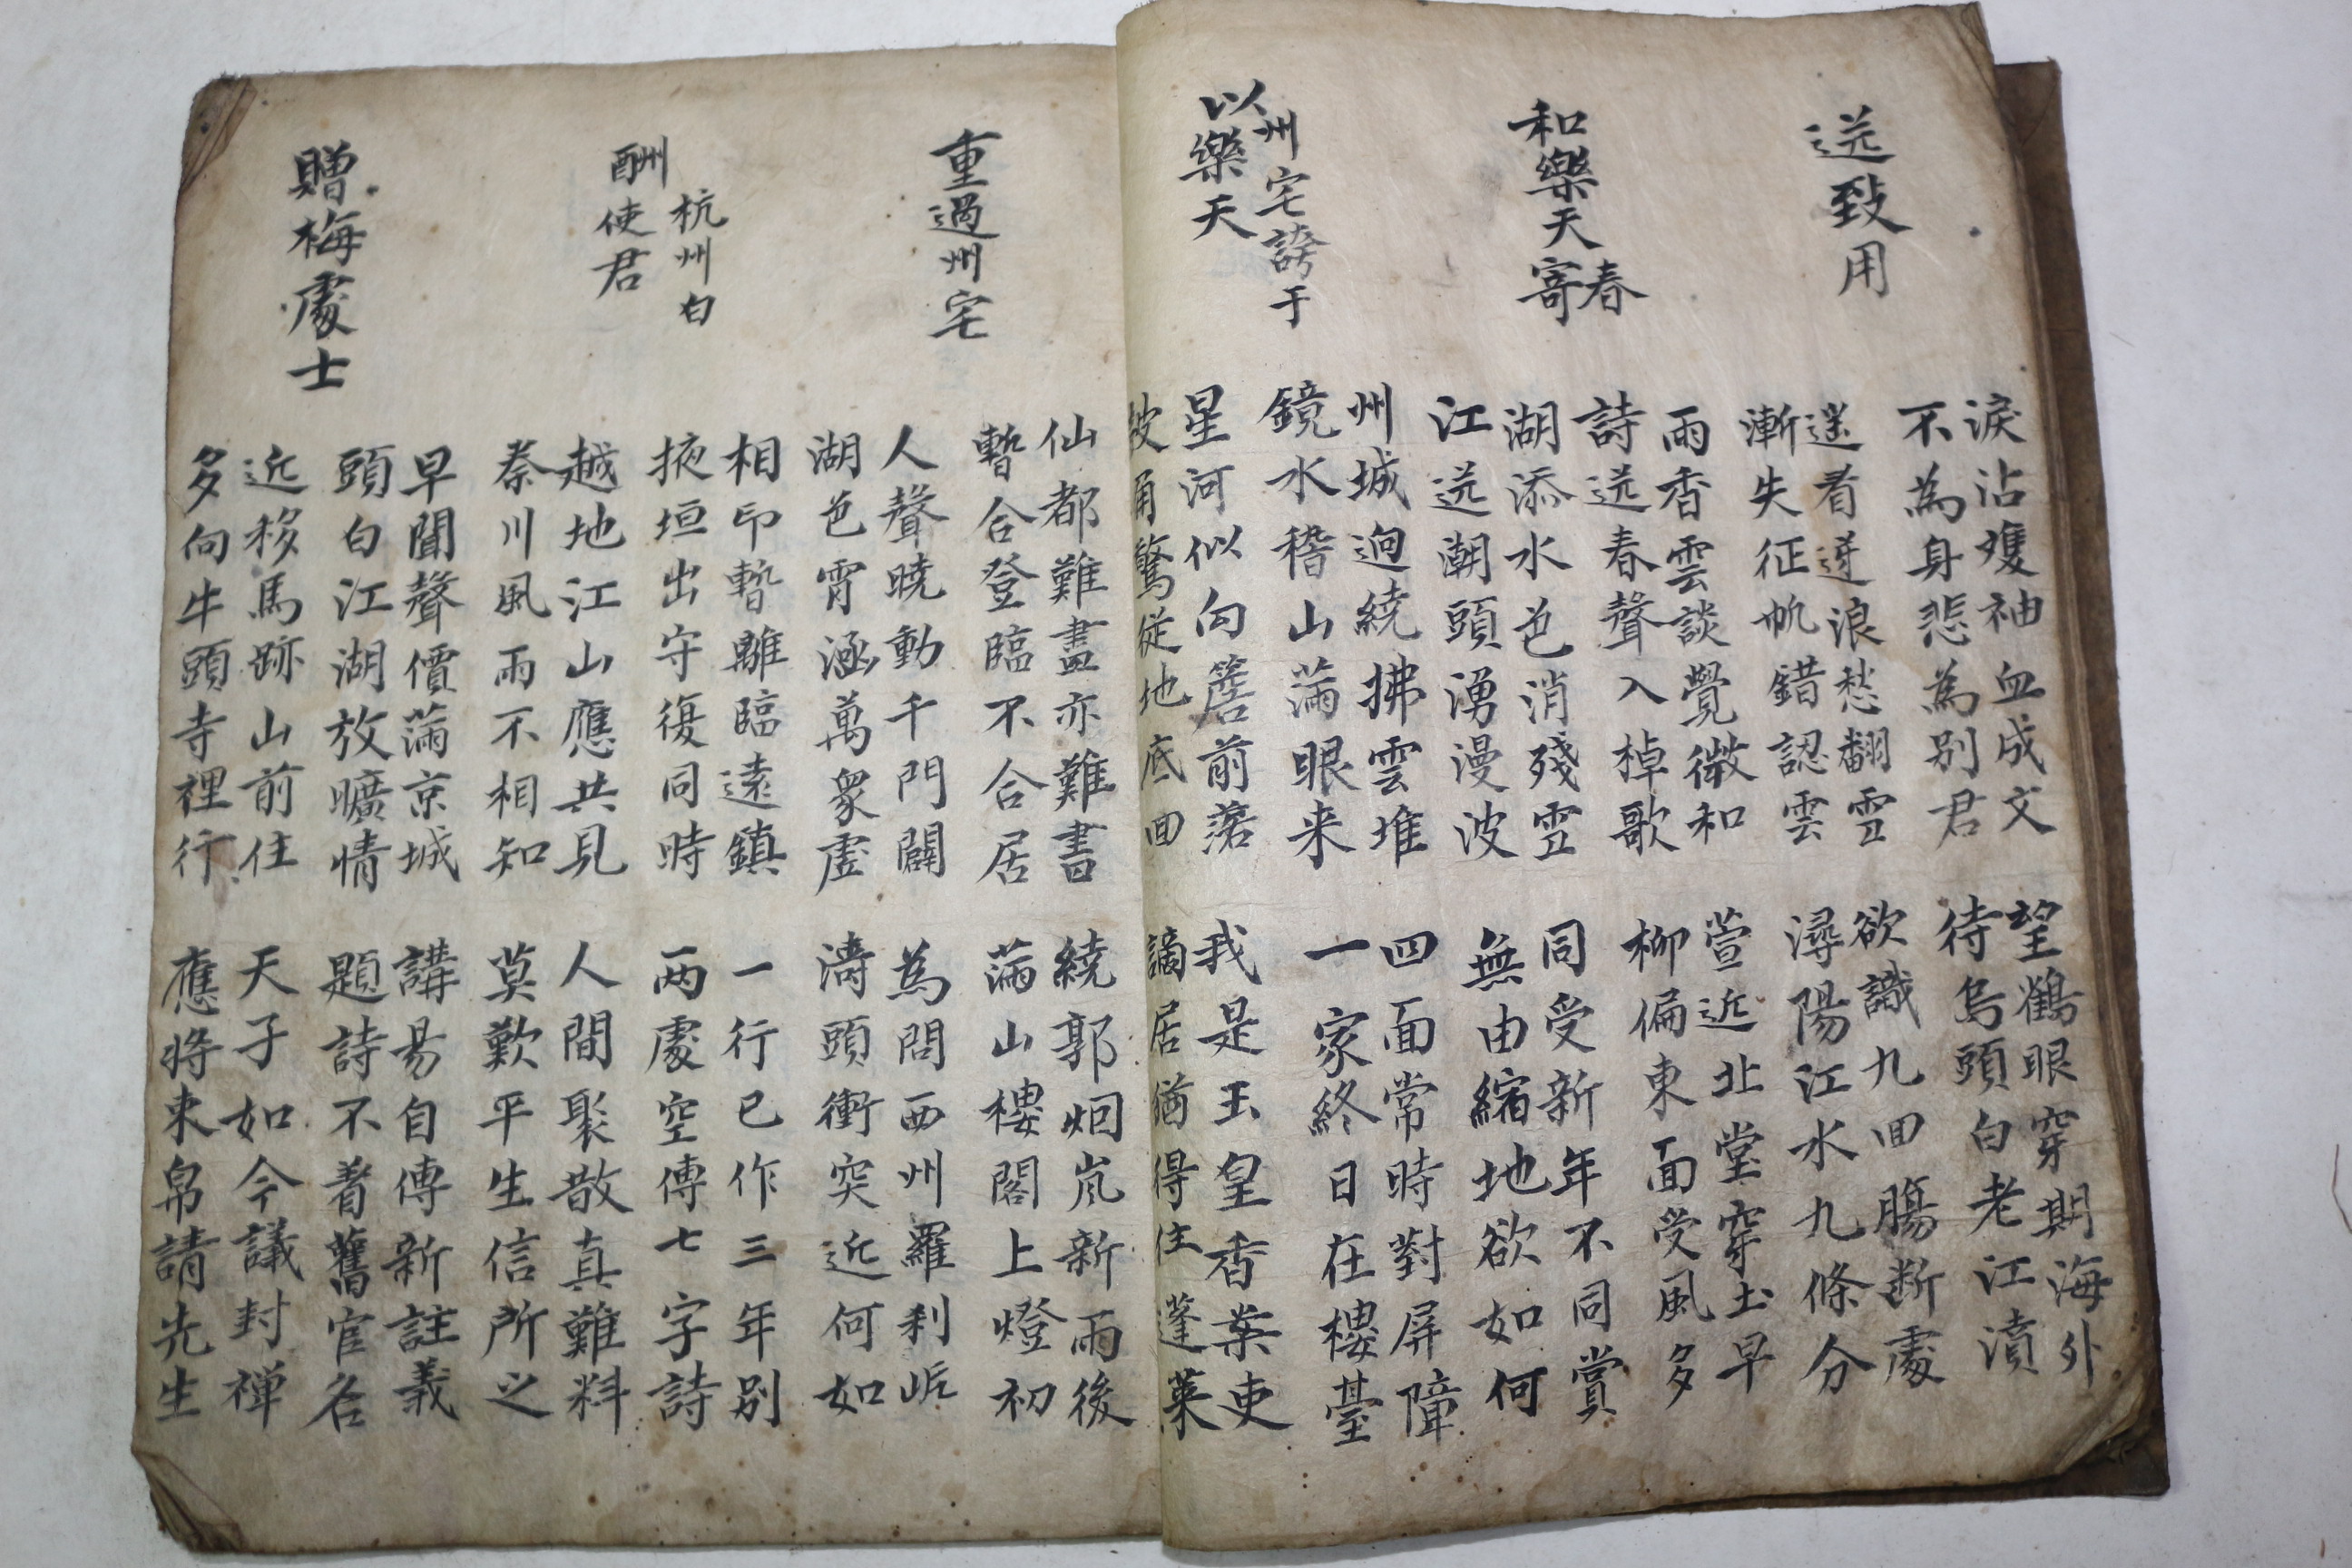 送致用
淚沾雙袖血成文
不為身悲為別君
望鶴眼穿期海外
待烏頭白老江濆
遥看逆浪愁翻雪
漸失征帆錯認雲
欲識九回腸断處
潯陽江水九條分
和樂天寄
春
雨香雲談覺微和
詩送春聲入棹歌
萱近北堂穿土早
柳偏東面受風多
湖添水色消殘雪
江送潮頭湧漫波
同受新年不同賞
無由縮地欲如何
州宅誇于
以樂天
州城迥繞拂雲堆
鏡水稽山滿眼来
四面常時對屏障
一家終日在樓臺
星河似向簷前落
皷角驚從地底回
我是玉皇香案吏
謫居猶得住蓬萊
重過州宅
仙都難畫亦難書
暫合登臨不合居
繞郭烟嵐新雨後
滿山樓閣上燈初
人聲曉動千門闢
湖色宵涵萬象虛
為問西州羅刹岸
濤頭衝突近何如
酬
杭州白
使君
相印暫離臨遠鎮
掖垣出守復同時
一行已作三年別
两處空傳七字詩
越地江山應共見
秦川風雨不相知
人間聚散真難料
莫歎平生信所之
贈梅處士
早聞聲價滿京城
頭白江湖放曠情
講易自傳新註義
題詩不着舊官名
近移馬跡山前住
多向牛頭寺裡行
天子如今議封禪
應將束帛請先生